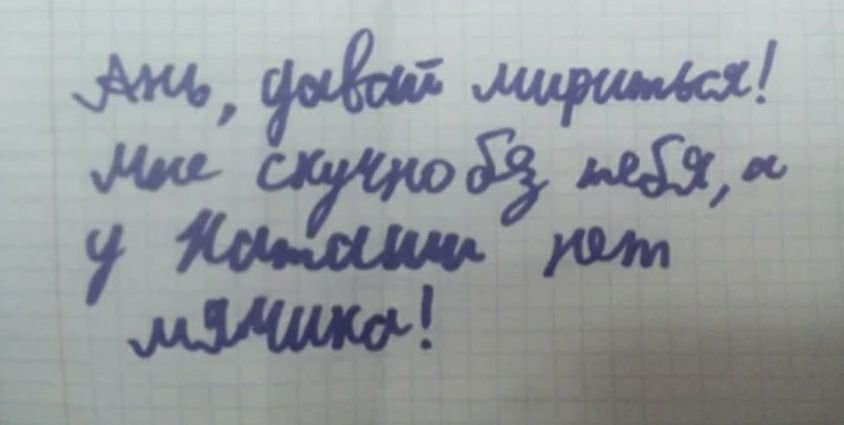 Ань, давай мириться!
Мне скучно бяз тебя, а
у Наташи нет
мячика!